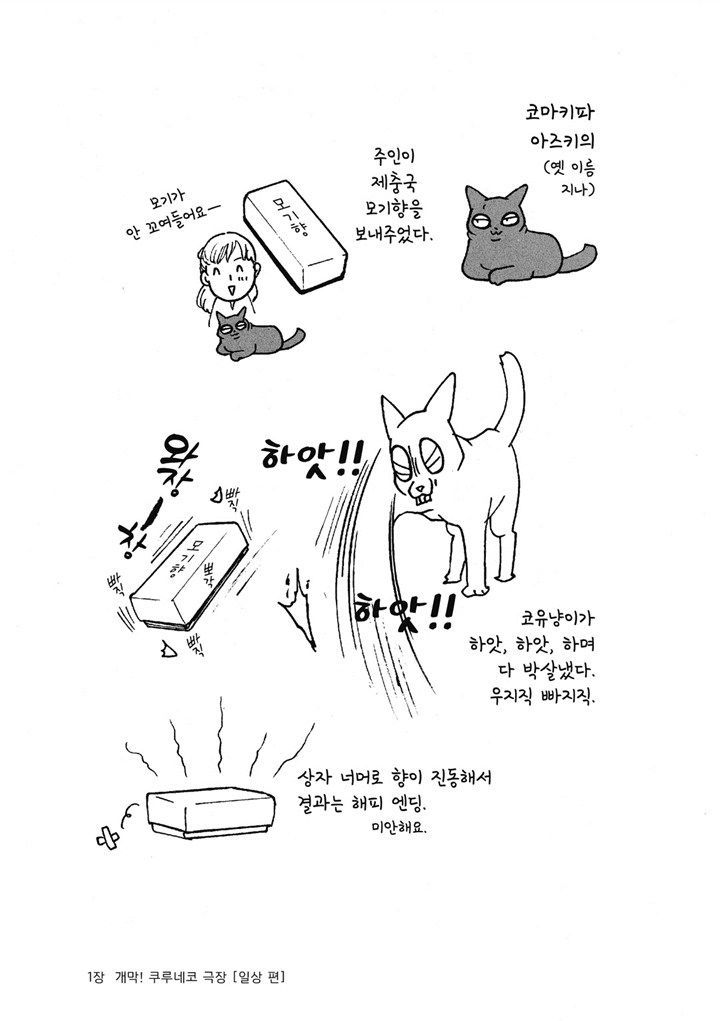 코마키파
아즈키의
(옛 이름
지나)
주인이
제충국
모기향을
보내주었다.
모기향
모기가
안 꼬여들어요—
하앗!!
와장
창—
빠직
모기향
뽀각
빠직
빠직
하앗!!
코유냥이가
하앗, 하앗, 하며
다 박살냈다.
우지직 빠지직.
상자 너머로 향이 진동해서
결과는 해피 엔딩.
미안해요.
1장 개막! 쿠루네코 극장 [일상 편]